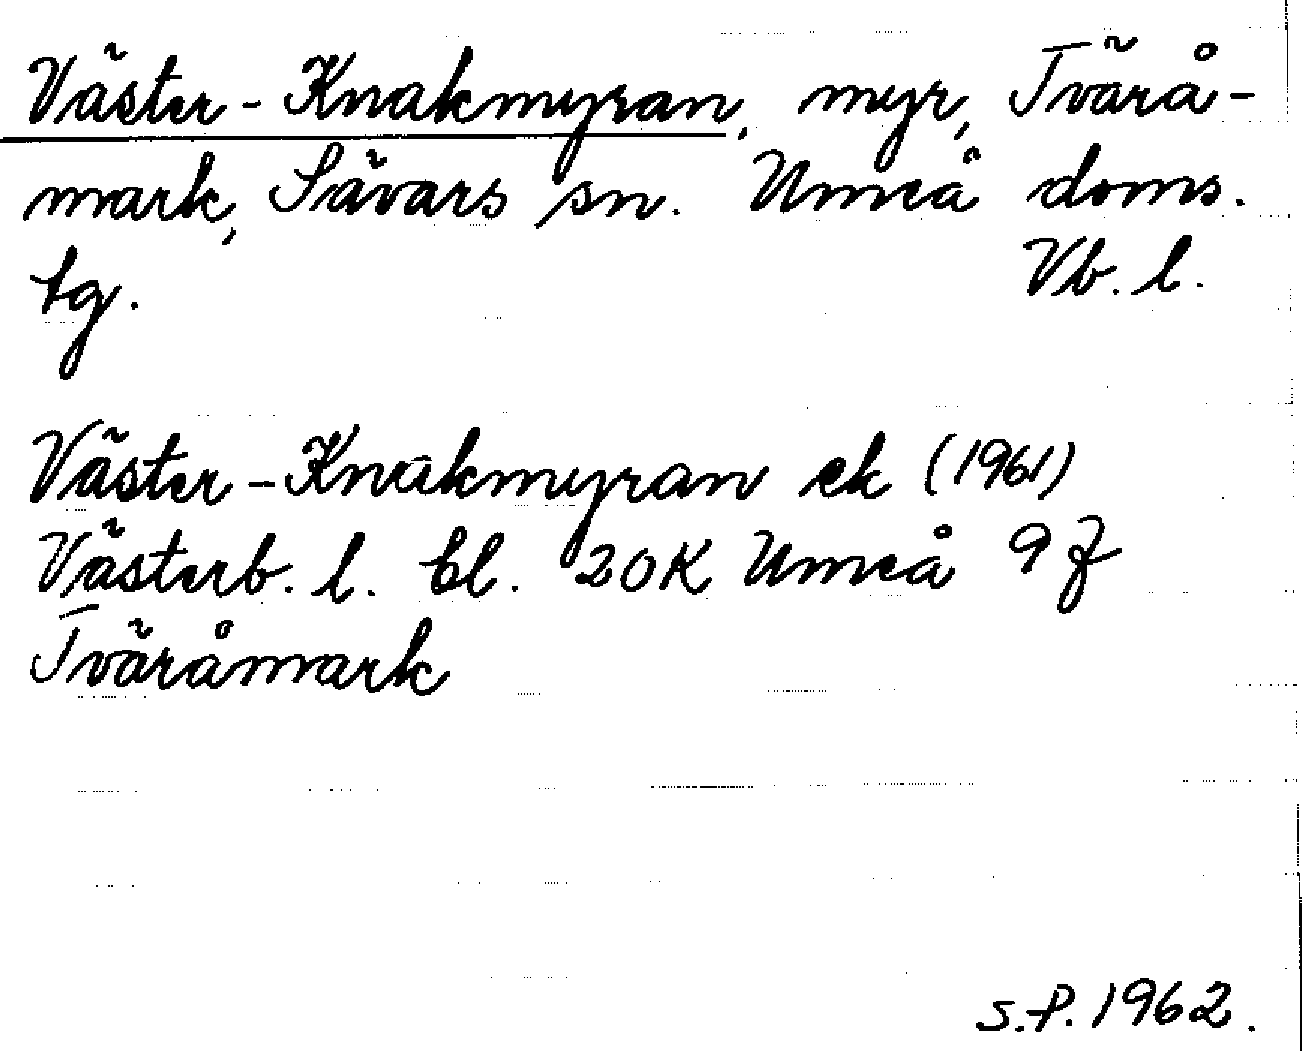 Väster-Knakmyran, myr, Tvärå-
mark, Sävars sn. Umeå doms.
tg. Vb. l.
Väster-Knakmyran ek (1961)
Västerb. l. bl. 20K Umeå 9f
Tväråmark
S.P. 1962.